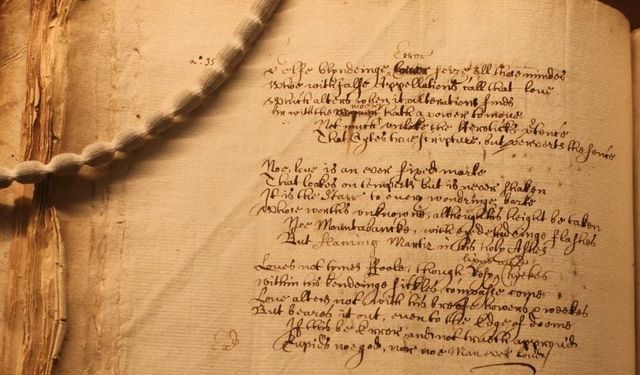 n.º 35
Error
Selfe blyndeinge seize all those mindes
Whoe with false Appellations call that love
Which alters when it alterations finds
Or with the hath a power to move
Not much unlike the Hereticks pretence
That Cytes true scripture, but perverts the sence
Noe, love is an ever fixed marke
That lookes on tempests but is never shaken
It is the starr to every wandringe barke
Whose worths unknowne, although his height be taken
Noe Mountebanke, with eie-deludeinge flashes
But flameing Martir in his holy Ashes
lippes &
Loves not tymes Foole, though Rosy cheekes
within his bendeinge sickles compasse come
Love alters not with his breefe howers & weekes
But beares it out, even to the edge of doome
If this be Error and not truth approved
Cupids noe god, nor noe Man ever loved